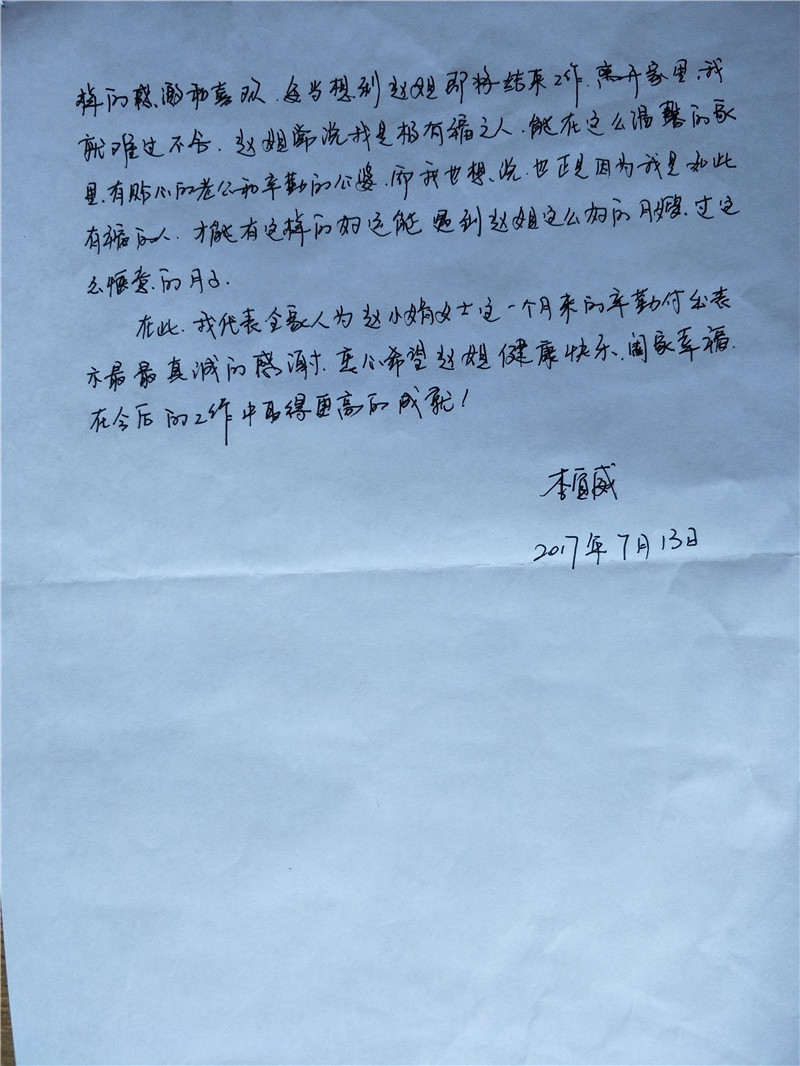 样的感激和喜欢。每当想到赵姐即将结束工作，离开家里，我
就难过不舍。赵姐常说我是极有福之人，能在这么温馨的家
里，有贴心的老公和辛勤的公婆，而我也想说，也正是因为我是如此
有福的人，才能有这样的好运能遇到赵姐这么好的月嫂，过这
么惬意的月子。
在此，我代表全家人为赵小娟女士这一个月来的辛勤付出表
示最最真诚的感谢，衷心希望赵姐健康快乐、阖家幸福，
在今后的工作中取得更高的成就！
李宜威
2017年7月13日